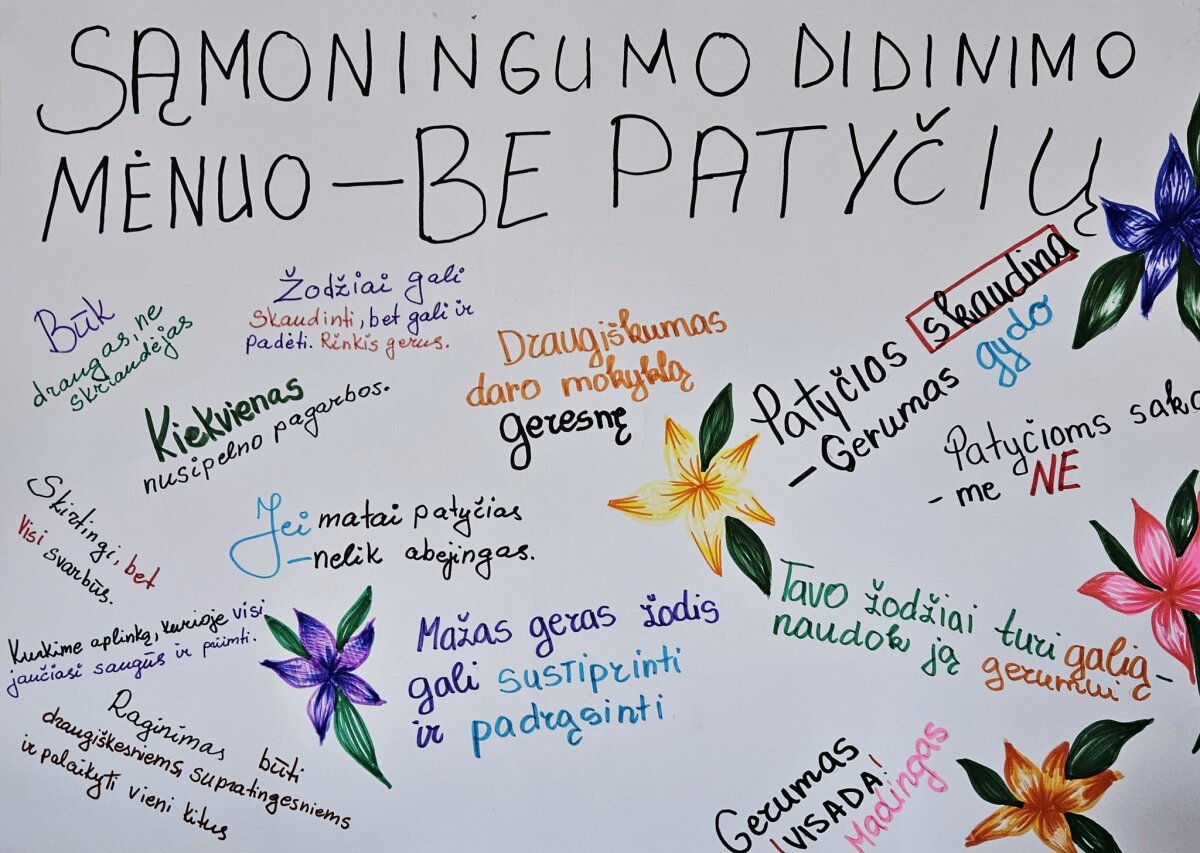 SĄMONINGUMO DIDINIMO
MĖNUO – BE PATYČIŲ
Būk
draugas, ne
skriaudėjas
Žodžiai gali
skaudinti, bet gali ir
padėti. Rinkis gerus.
Draugiškumas
daro mokyklą
geresnę
Patyčios skaudina
– Gerumas gydo
Kiekvienas
nusipelno pagarbos.
Patyčioms sako
- me NE
Skirtingi, bet
Visi svarbūs.
Jei matai patyčias
– nelik abejingas.
Kurkime aplinką, kurioje visi
jaučiasi saugūs ir priimti.
Mažas geras žodis
gali sustiprinti
ir padrąsinti
Tavo žodžiai turi galią –
naudok ją gerumui
Raginimas būti
draugiškesniems, supratingesniems
ir palaikyti vieni kitus
Gerumas
VISADA!
Madingas